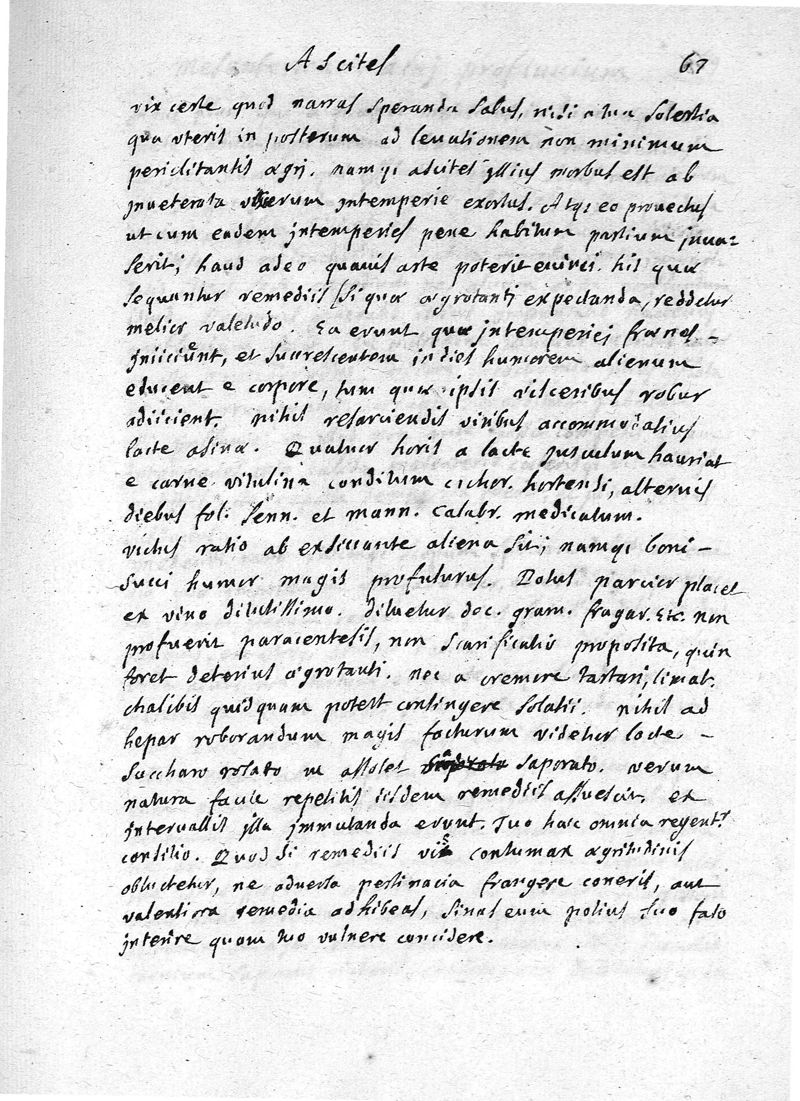 Ascites 67
vix certe quod narras speranda salus, nisi a tua solertia
qua uteris in posterum ad levationem non minimum
periclitantis ægrj. namqj ascites jllius morbus est ab
jnveterata viscerum jntemperie exortus. Atqj eo provectus
ut cum eadem jntemperies pene habitum partium jnva=
serit; haud adeo quavis arte poterit evinci. his quæ
sequuntur remediis [si qua ægrotanti expectanda, reddetur
melior valetudo. Ea erunt quæ jntemperiej frænos -
jniiciunt, et succrescentem in dies humorem alienum
educent e corpore, tum quæ ipsis visceribus robur
adiicient. nihil resarciendis viribus accommodatius
lacte asinæ. Quatuor horis a lacte jusculum hauriat
e carne vitulina conditum cichor. hortensi, alternis
diebus fol. senn. et mann. calabr. medicatum.
victus ratio ab exsiccante aliena sit; namqj boni -
succi humor magis profuturus. Potus parcior placet
ex vino dilutissimo. diluetur dec. gram. fragar. Etc. non
profuerit paracentesis, non scarificatio proposita, quin
foret deterius ægrotanti. nec a cremore tartari, limat.
chalibis quidquam potest contingere solatii. nihil ad
hepar roborandum magis facturum videtur lacte -
saccharo rosato ut assolet saporato. verum
natura facile repetitis iisdem remediis assuescit, et
jntervallis jlla jmmutanda erunt. Tuo hæc omnia regentr
consilio. Quod si remediis vis contumax ægritudinis
obluctetur, ne adversa pertinacia frangere coneris, aut
valentiora remedia adhibeas, sinas eum potius suo fato
jnterire quam tuo vulnere concidere.